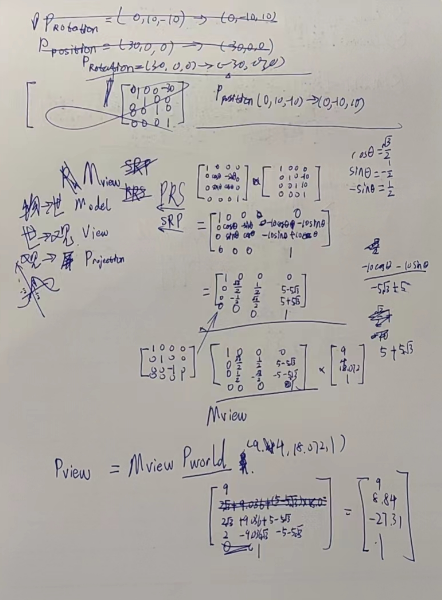 P Rotation = (0,10,-10) → (0,-10,10)
P position = (30,0,0) → (-30,0,0)
P Rotation = (30,0,0) → (-30,0,0)
0 1 0 0
0 0 1 0
0 0 0 1
P position (0,10,-10) → (0,-10,10)
cosθ = √3/2
sinθ = -1/2
-sinθ = 1/2
Mview SRP
PRS
SRP
物→世 Model
世→观 View
观→屏 Projection
1 0 0 0
0 cosθ -sinθ 0
0 sinθ cosθ 0
0 0 0 1
×
1 0 0 0
0 1 0 -10
0 0 1 10
0 0 0 1
=
1 0 0 0
0 cosθ -sinθ -10cosθ -10sinθ
0 sinθ cosθ -10sinθ+10cosθ
0 0 0 1
-10cosθ -10sinθ
-5√3+5
=
1 0 0 0
0 √3/2 1/2 5-5√3
0 -1/2 √3/2 5+5√3
0 0 0 1
5+5√3
1 0 0 0
0 1 0 0
0 0 -1 0
0 0 0 1
1 0 0 0
0 √3/2 1/2 5-5√3
0 1/2 -√3/2 -5-5√3
0 0 0 1
×
9
4
18.072
1
Mview
Pview = Mview Pworld (9,4,18.072,1)
9
2√3 +9.036+5-5√3
2 -9.036√3 -5-5√3
1
=
9
8.84
-27.31
1